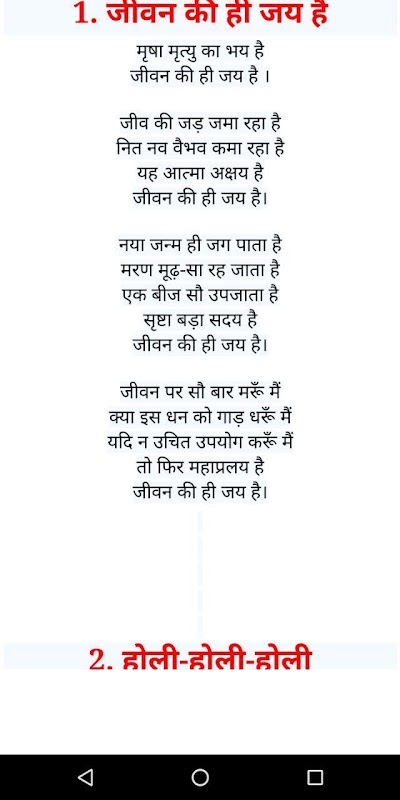 1. जीवन की ही जय है
मृषा मृत्यु का भय है
जीवन की ही जय है ।
जीव की जड़ जमा रहा है
नित नव वैभव कमा रहा है
यह आत्मा अक्षय है
जीवन की ही जय है।
नया जन्म ही जग पाता है
मरण मूढ़-सा रह जाता है
एक बीज सौ उपजाता है
सृष्टा बड़ा सदय है
जीवन की ही जय है।
जीवन पर सौ बार मरूँ मैं
क्या इस धन को गाड़ धरूँ मैं
यदि न उचित उपयोग करूँ मैं
तो फिर महाप्रलय है
जीवन की ही जय है।
2. होली-होली-होली